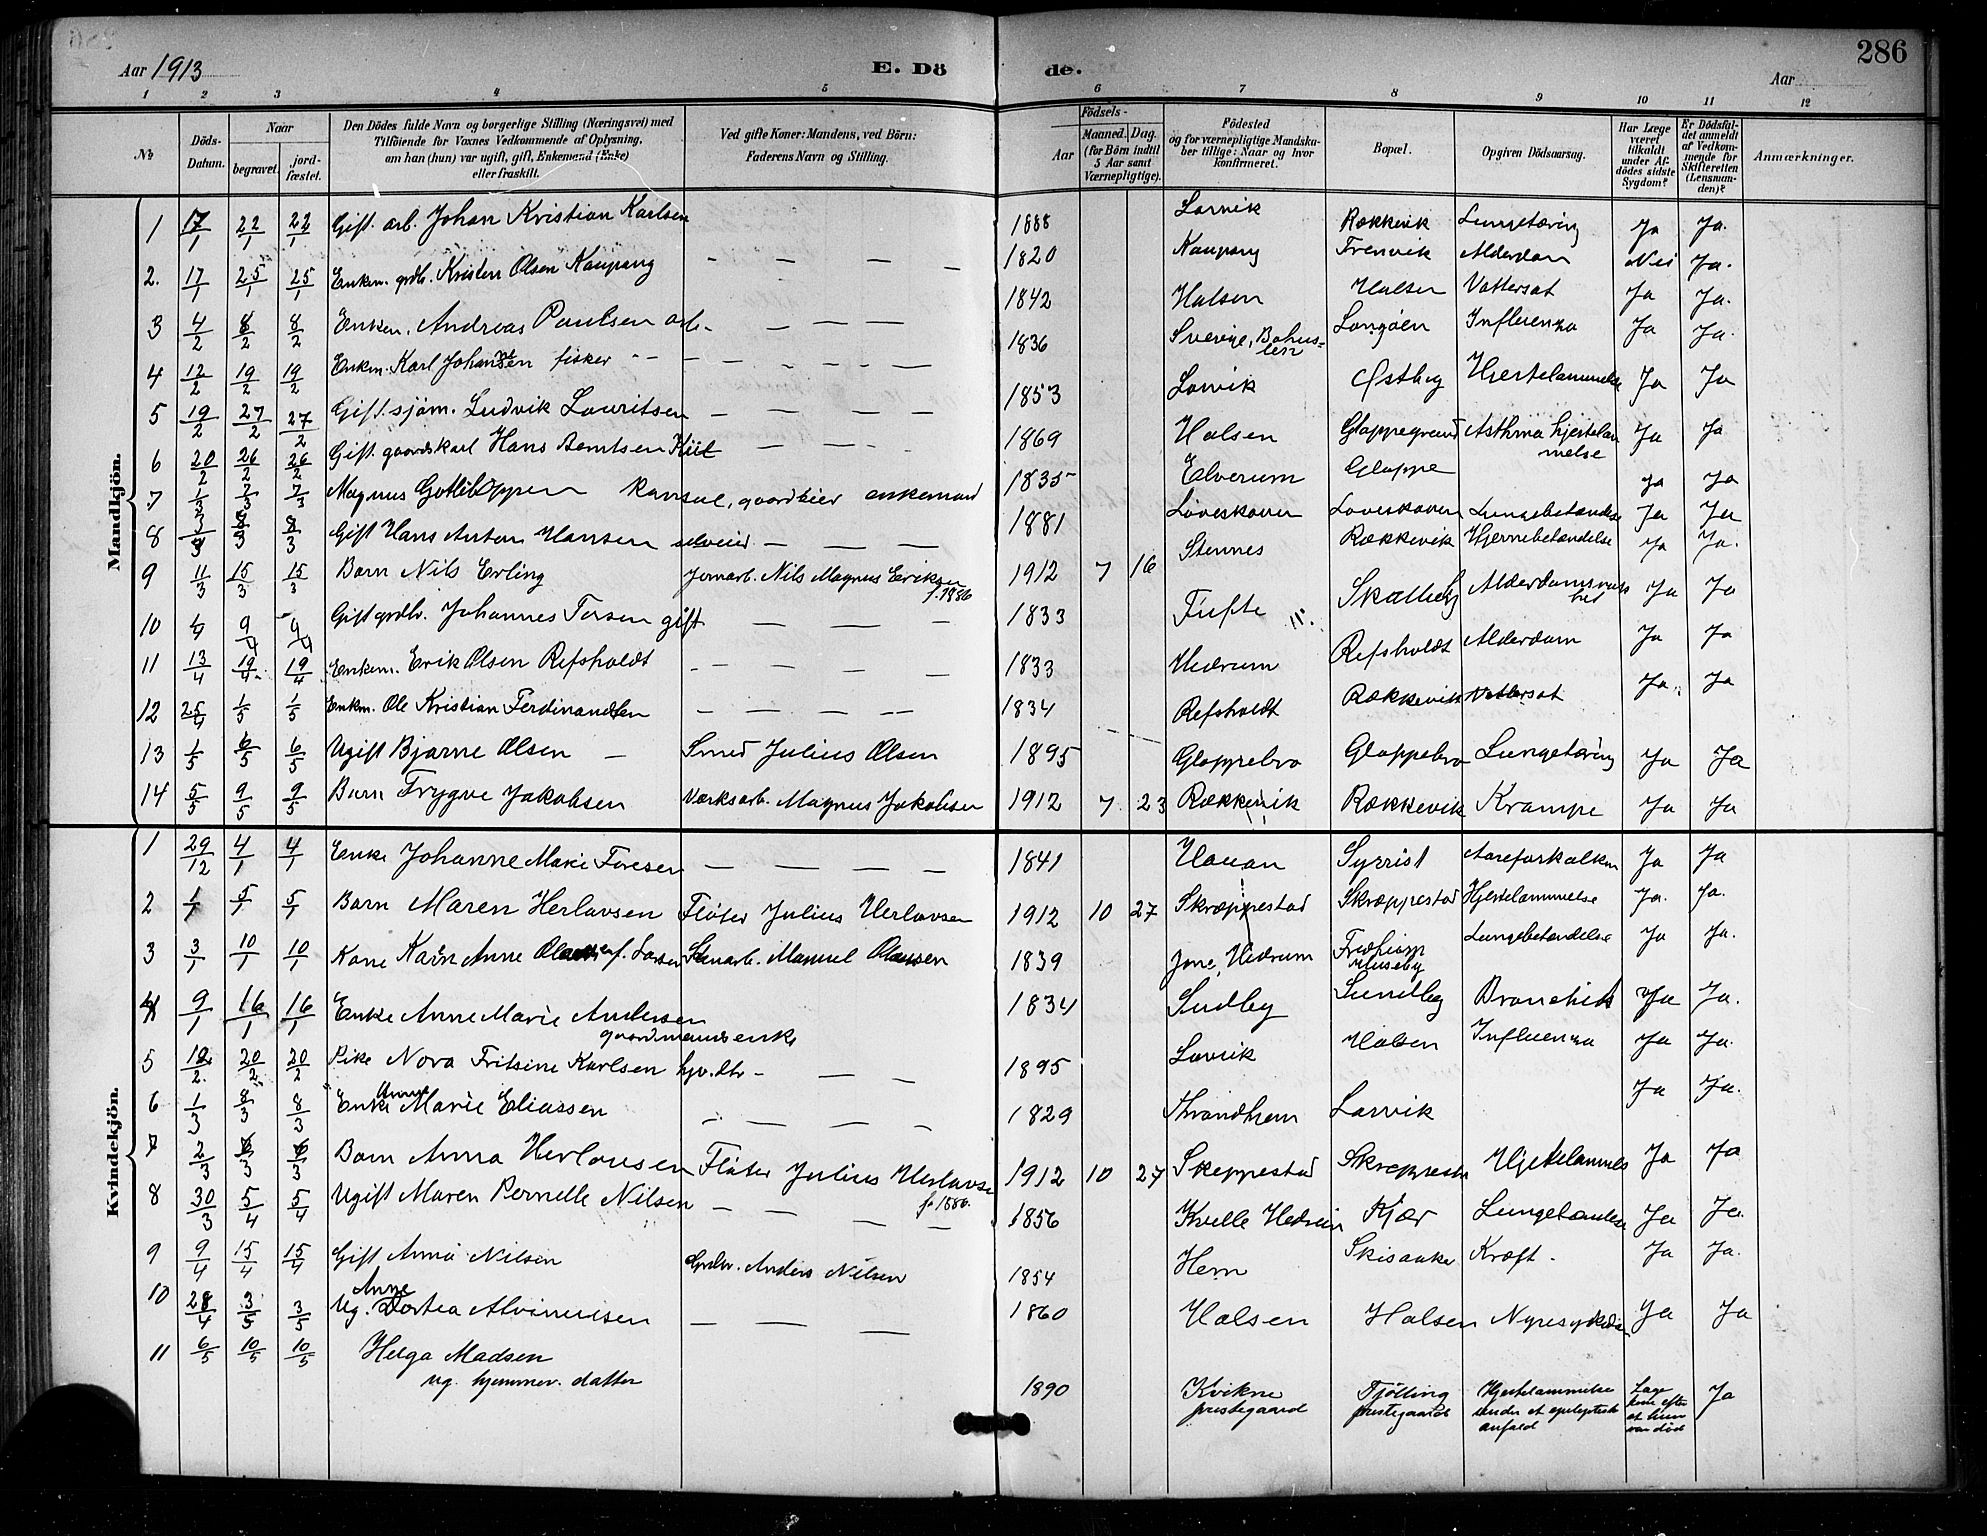 Aar 1913
E. Dö de.
Aar
286
1 2 3 4 5 6 7 8 9 10 11 12
No
Döds-Datum.
Naar
begravet.
jord-fæstet.
Den Dödes fulde Navn og borgerlige Stilling (Næringsvei) med
Tilföiende for Voxnes Vedkommende af Oplysning,
om han (hun) var ugift, gift, Enkemand (Enke)
eller fraskilt.
Ved gifte Koner: Mandens, ved Börn:
Faderens Navn og Stilling.
Födsels-
Aar
Maaned. Dag.
(for Börn indtil
5 Aar samt
Værnepligtige).
Födested
og for værnepligtige Mandska-
ber tillige: Naar og hvor
konfirmeret.
Bopæl.
Opgiven Dödsaarsag.
Har Læge
været
tilkaldt
under Af-
dödes sidste
Sygdom?
Er Dödsfal-
det anmeldt
af Vedkom-
mende for
Skifteretten
(Lensman-
den)?
Anmærkninger.
Mandkjön.
1 17/1 22/1 22/1 Gift. arb. Johan Kristian Karlsen 1888 Larvik Rækkevik Lungetæring Ja Ja.
2. 17/1 25/1 25/1 Enkm. grdb. Kristen Olsen Kaupang — — — — 1820 Kaupang Alderdom Nei Ja.
3 4/2 8/2 8/2 Enkem. Andreas Paulsen arb. — — — 1842 Halsen Halsen Vattersot Ja Ja.
4 12/2 19/2 19/2 Enkm. Karl Johansen fisker 1836 Sverige, Bohus-
len Langöen Influenza Ja Ja.
5 19/2 27/2 27/2 Gift. sjöm. Ludvik Lauritsen — — — — 1853 Larvik Østby Hjertelammelse Ja Ja
6 20/2 26/2 26/2 Gift. gaardskarl Hans Berntsen — — 1869 Halsen Gloppegrund Asthma hjertelam
melse Ja Ja
7 1/3 7/3 7/3 Magnus Gotlib Oppen konsul, gaardeier enkemand 1835 Elverum Gloppe Ja Ja
8 3/3 8/3 8/3 Gift Hans Anton Hansen selveier — — — 1881 Löveskoven Löveskoven Lungebetændelse Ja Ja
9 11/3 15/3 15/3 Barn Nils Erling Jernarb. Nils Magnus Eriksen
f. 1886 1912 7 16 Stennes Rækkevik Hjernebetændelse Ja Ja.
10 9/4 9/4 Gift grdbr. Johannes Torsen gift — — — 1833 Tufte Skalleberg Ja Ja
11 13/4 19/4 19/4 Enkem. Erik Olsen Refsholdt — — — — 1833 Hedrum Refsholdt Alderdom Ja Ja
12 25/4 1/5 1/5 Enkm. Ole Kristian Ferdinandsen — — — — 1834 Refsholdt Rækkevik Vattersot Ja Ja
13 1/5 6/5 6/5 Ugift Bjarne Olsen — Smed Julius Olsen 1895 Gloppebro Gloppebro Lungetæring Ja Ja
14 5/5 9/5 9/5 Barn Trygve Jakobsen Værksarb. Magnus Jakobsen 1912 7 23 Rækkevik Rækkevik Krampe Ja Ja
Kvindekjön.
1 29/12 4/1 4/1 Enke Johanne Marie Toresen — — — — 1841 Syrrist Aareforkalkn Ja Ja
2 1/1 5/1 5/1 Barn Maren Herlovsen Flöter Julius Herlovsen 1912 10 27 Skræppestad Skræppestad Hjertelammelse Ja. Ja.
3 3/1 10/1 10/1 Kone Karn Anne f. Larsen Manuel Olausen 1839 Hedrum Huseby Lungebetændelse Ja Ja.
4 9/1 16/1 16/1 Enke Anne Marie Andersen
gaardmands enke 1834 Sundby Sundby Bronchit Ja Ja.
5 12/2. 20/2 20/2 Pike Nora Fritsine Karlsen hjv. dtr — — — 1895 Larvik Halsen Influenza Ja Ja.
6 1/3 8/3 8/3 Enke Marie Eliassen — — — — 1829 Throndhem Larvik Ja Ja.
7 2/3 6/3 6/3 Barn Anna Herlovsen Flöter Julius Herlovsen
f. 1886. 1912 10 27 Skeppestad Skreppestad Hjertelammels Ja Ja
8 30/3 5/4 5/4 Ugift Maren Pernelle Nilsen — — — — 1856 Kvelle Hedrum Kjær Ja Ja.
9 9/4 15/4 15/4 Gift Anna Nilsen Grdbr. Anders Nilsen 1854 Hem Kræft. Ja Ja.
10 28/4 3/5 3/5 Ug. Anne Dortea — — — 1860 Halsen Halsen Nyresygdom Ja Ja
11 6/5 10/5 10/5 Helga Madsen
ug. hjemmev. datter 1890 Kvikne
prestegaard Tjölling
prestegaard Hjertelammelse
under et epileptisk
anfald Læge
kom efter
at hun
var död Ja